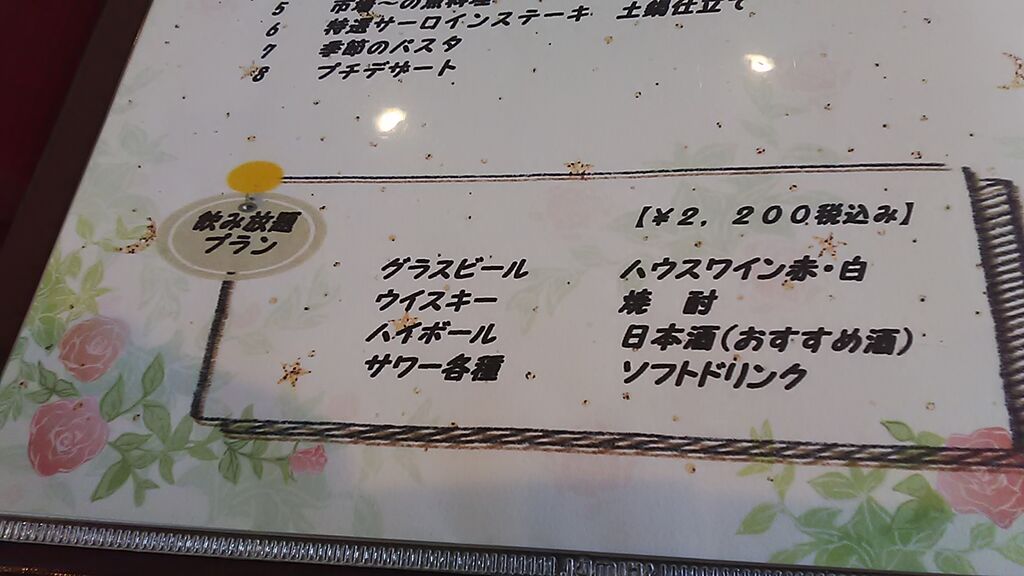 5 市場〜の魚料理
6 特選サーロインステーキ 土鍋仕立て
7 季節のパスタ
8 プチデザート
飲み放題
プラン
【¥2,200税込み】
グラスビール ハウスワイン赤・白
ウイスキー 焼 酎
ハイボール 日本酒(おすすめ酒)
サワー各種 ソフトドリンク